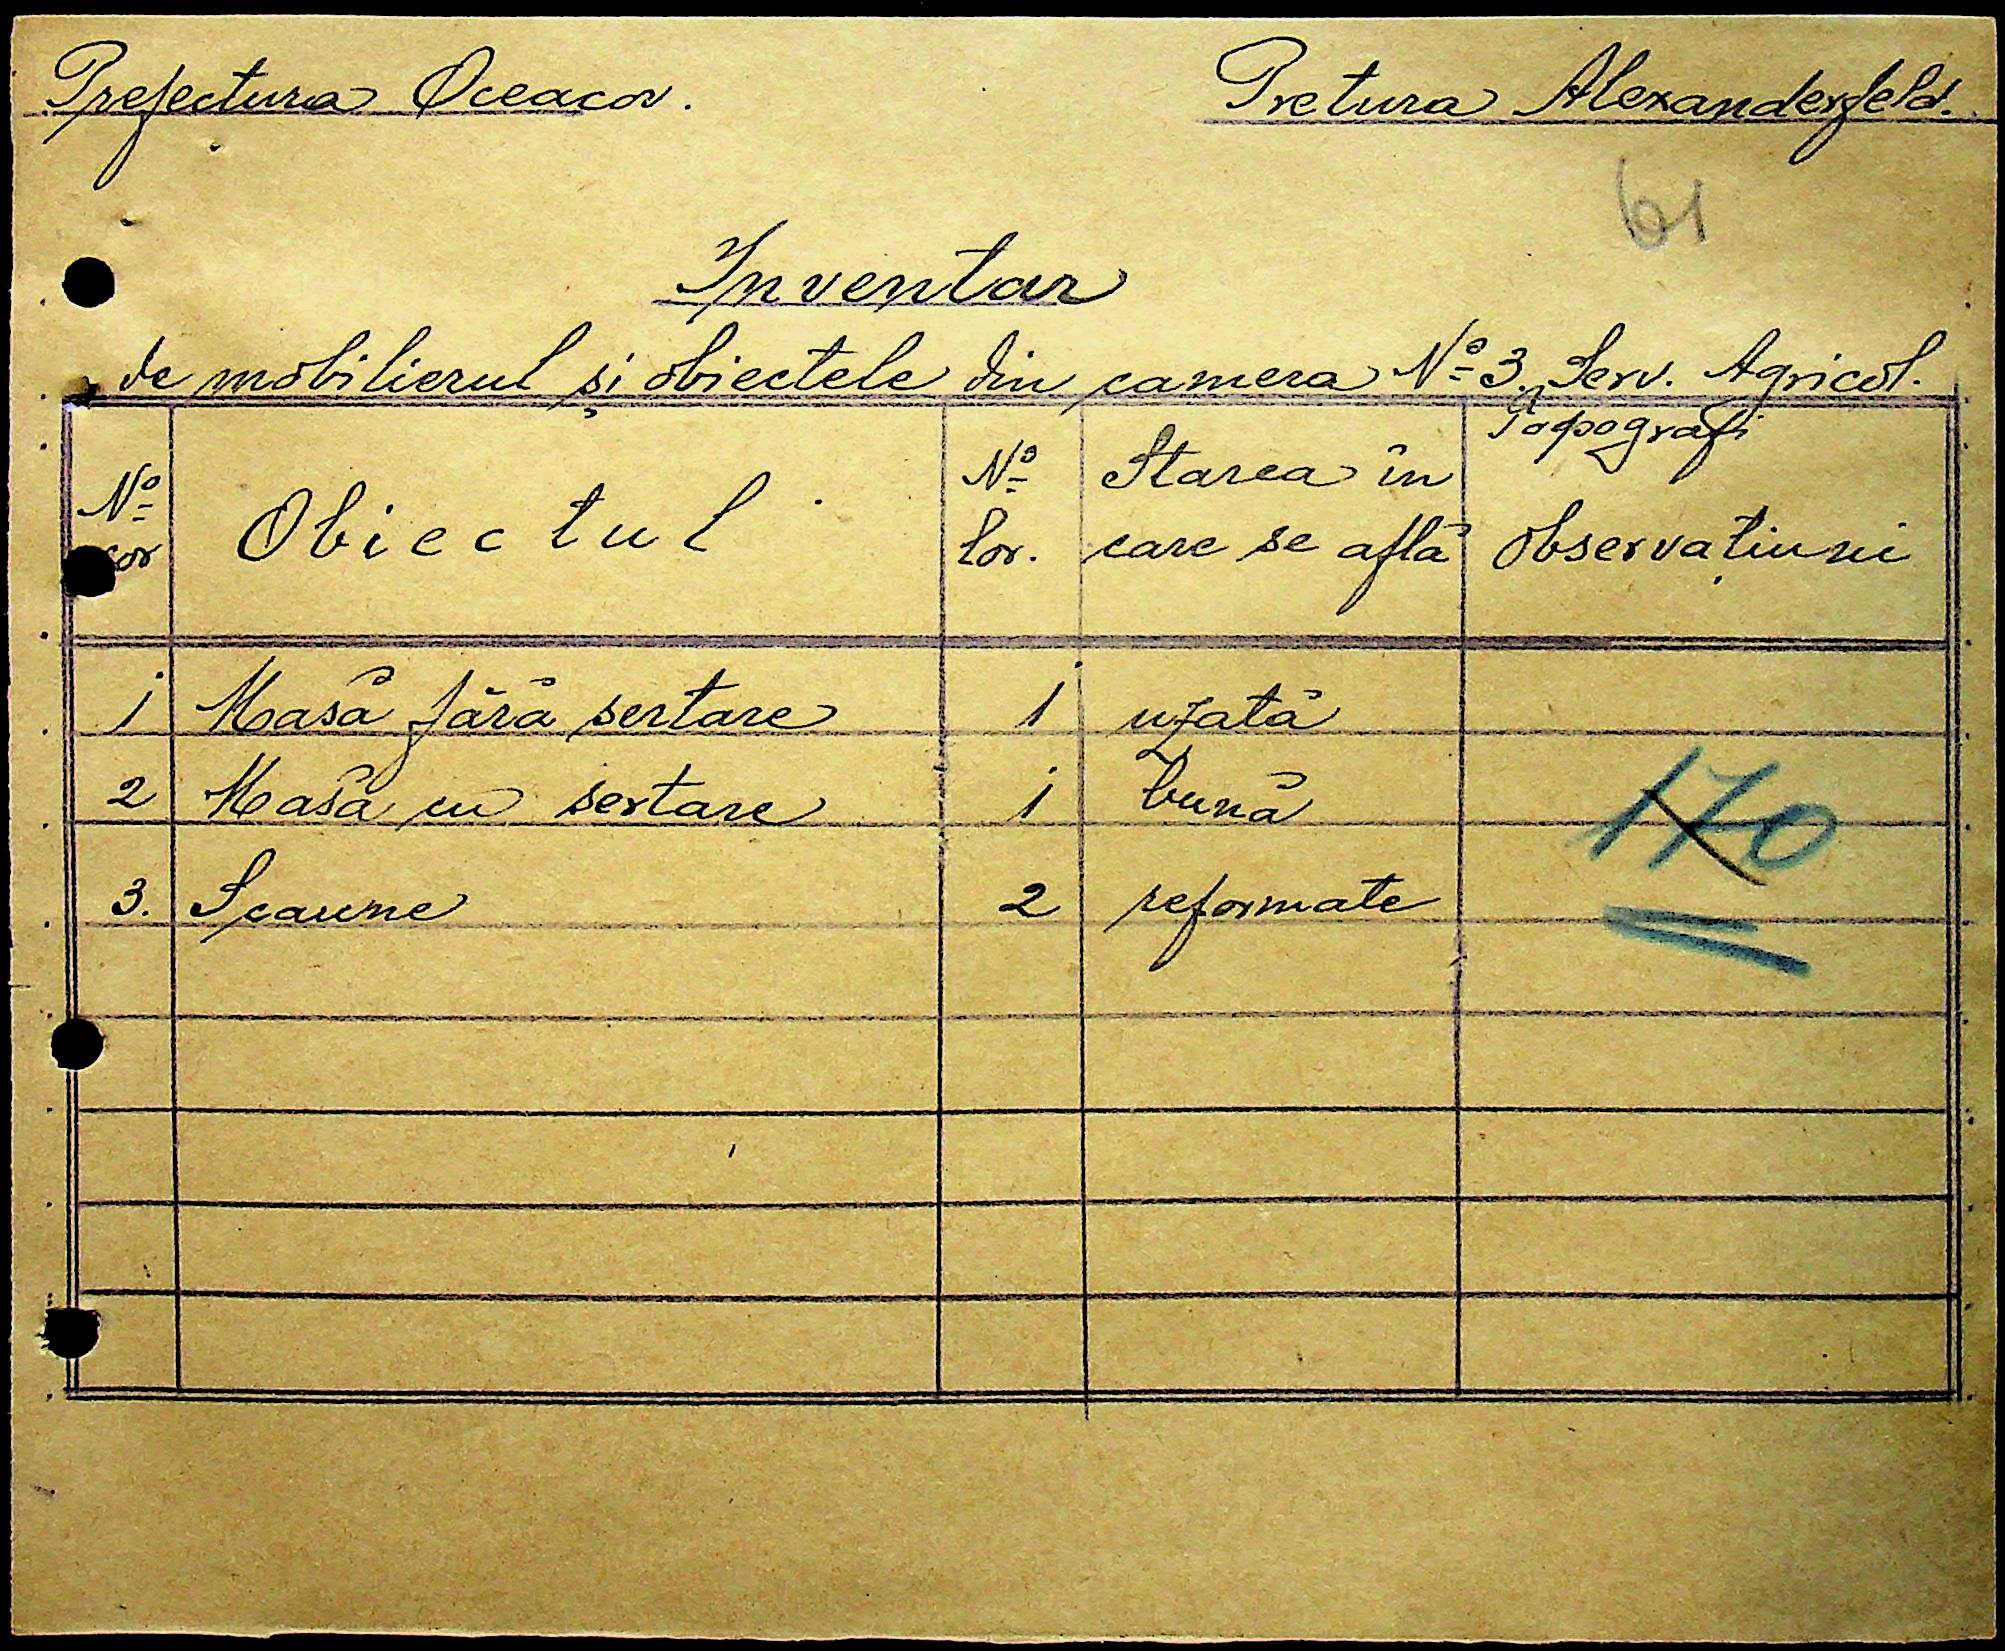 Prefectura Oceacov. Pretura Alexanderfeld.
61
Inventar
de mobilierul și obiectele din camera Nº 3. Serv. Agricol.
Topografi
Nº Obiectul Nº lor. Starea în care se află Observațiuni
1 Masă fără sertare 1 uzată
2 Masă cu sertare 1 bună
170
3. Scaune 2 reformate